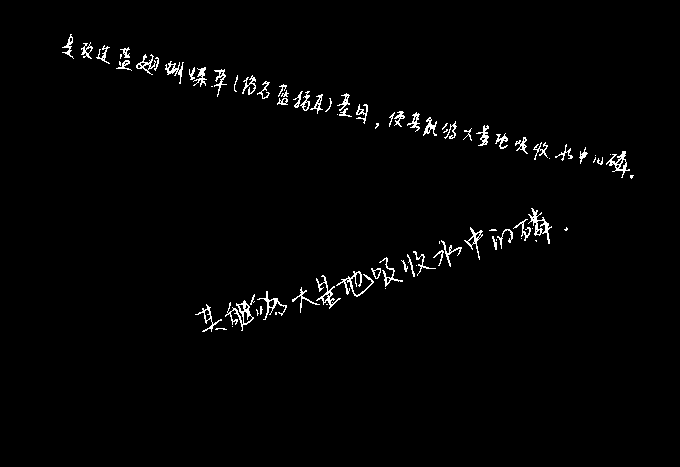 是改造蓝翅蝴蝶草(俗名蓝猪耳)基因,使其能够大量地吸收水中的磷。
其能够大量地吸收水中的磷.